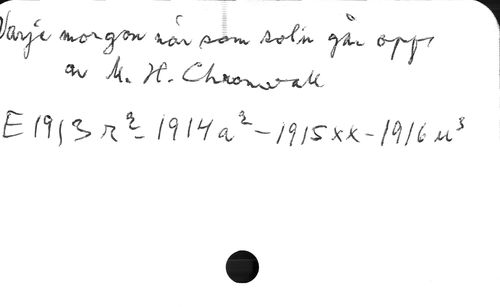 Varje morgon när som solen går opp,
av K. H. Chronwall
E 1913 r² - 1914 a² - 1915 xx - 1916 u³